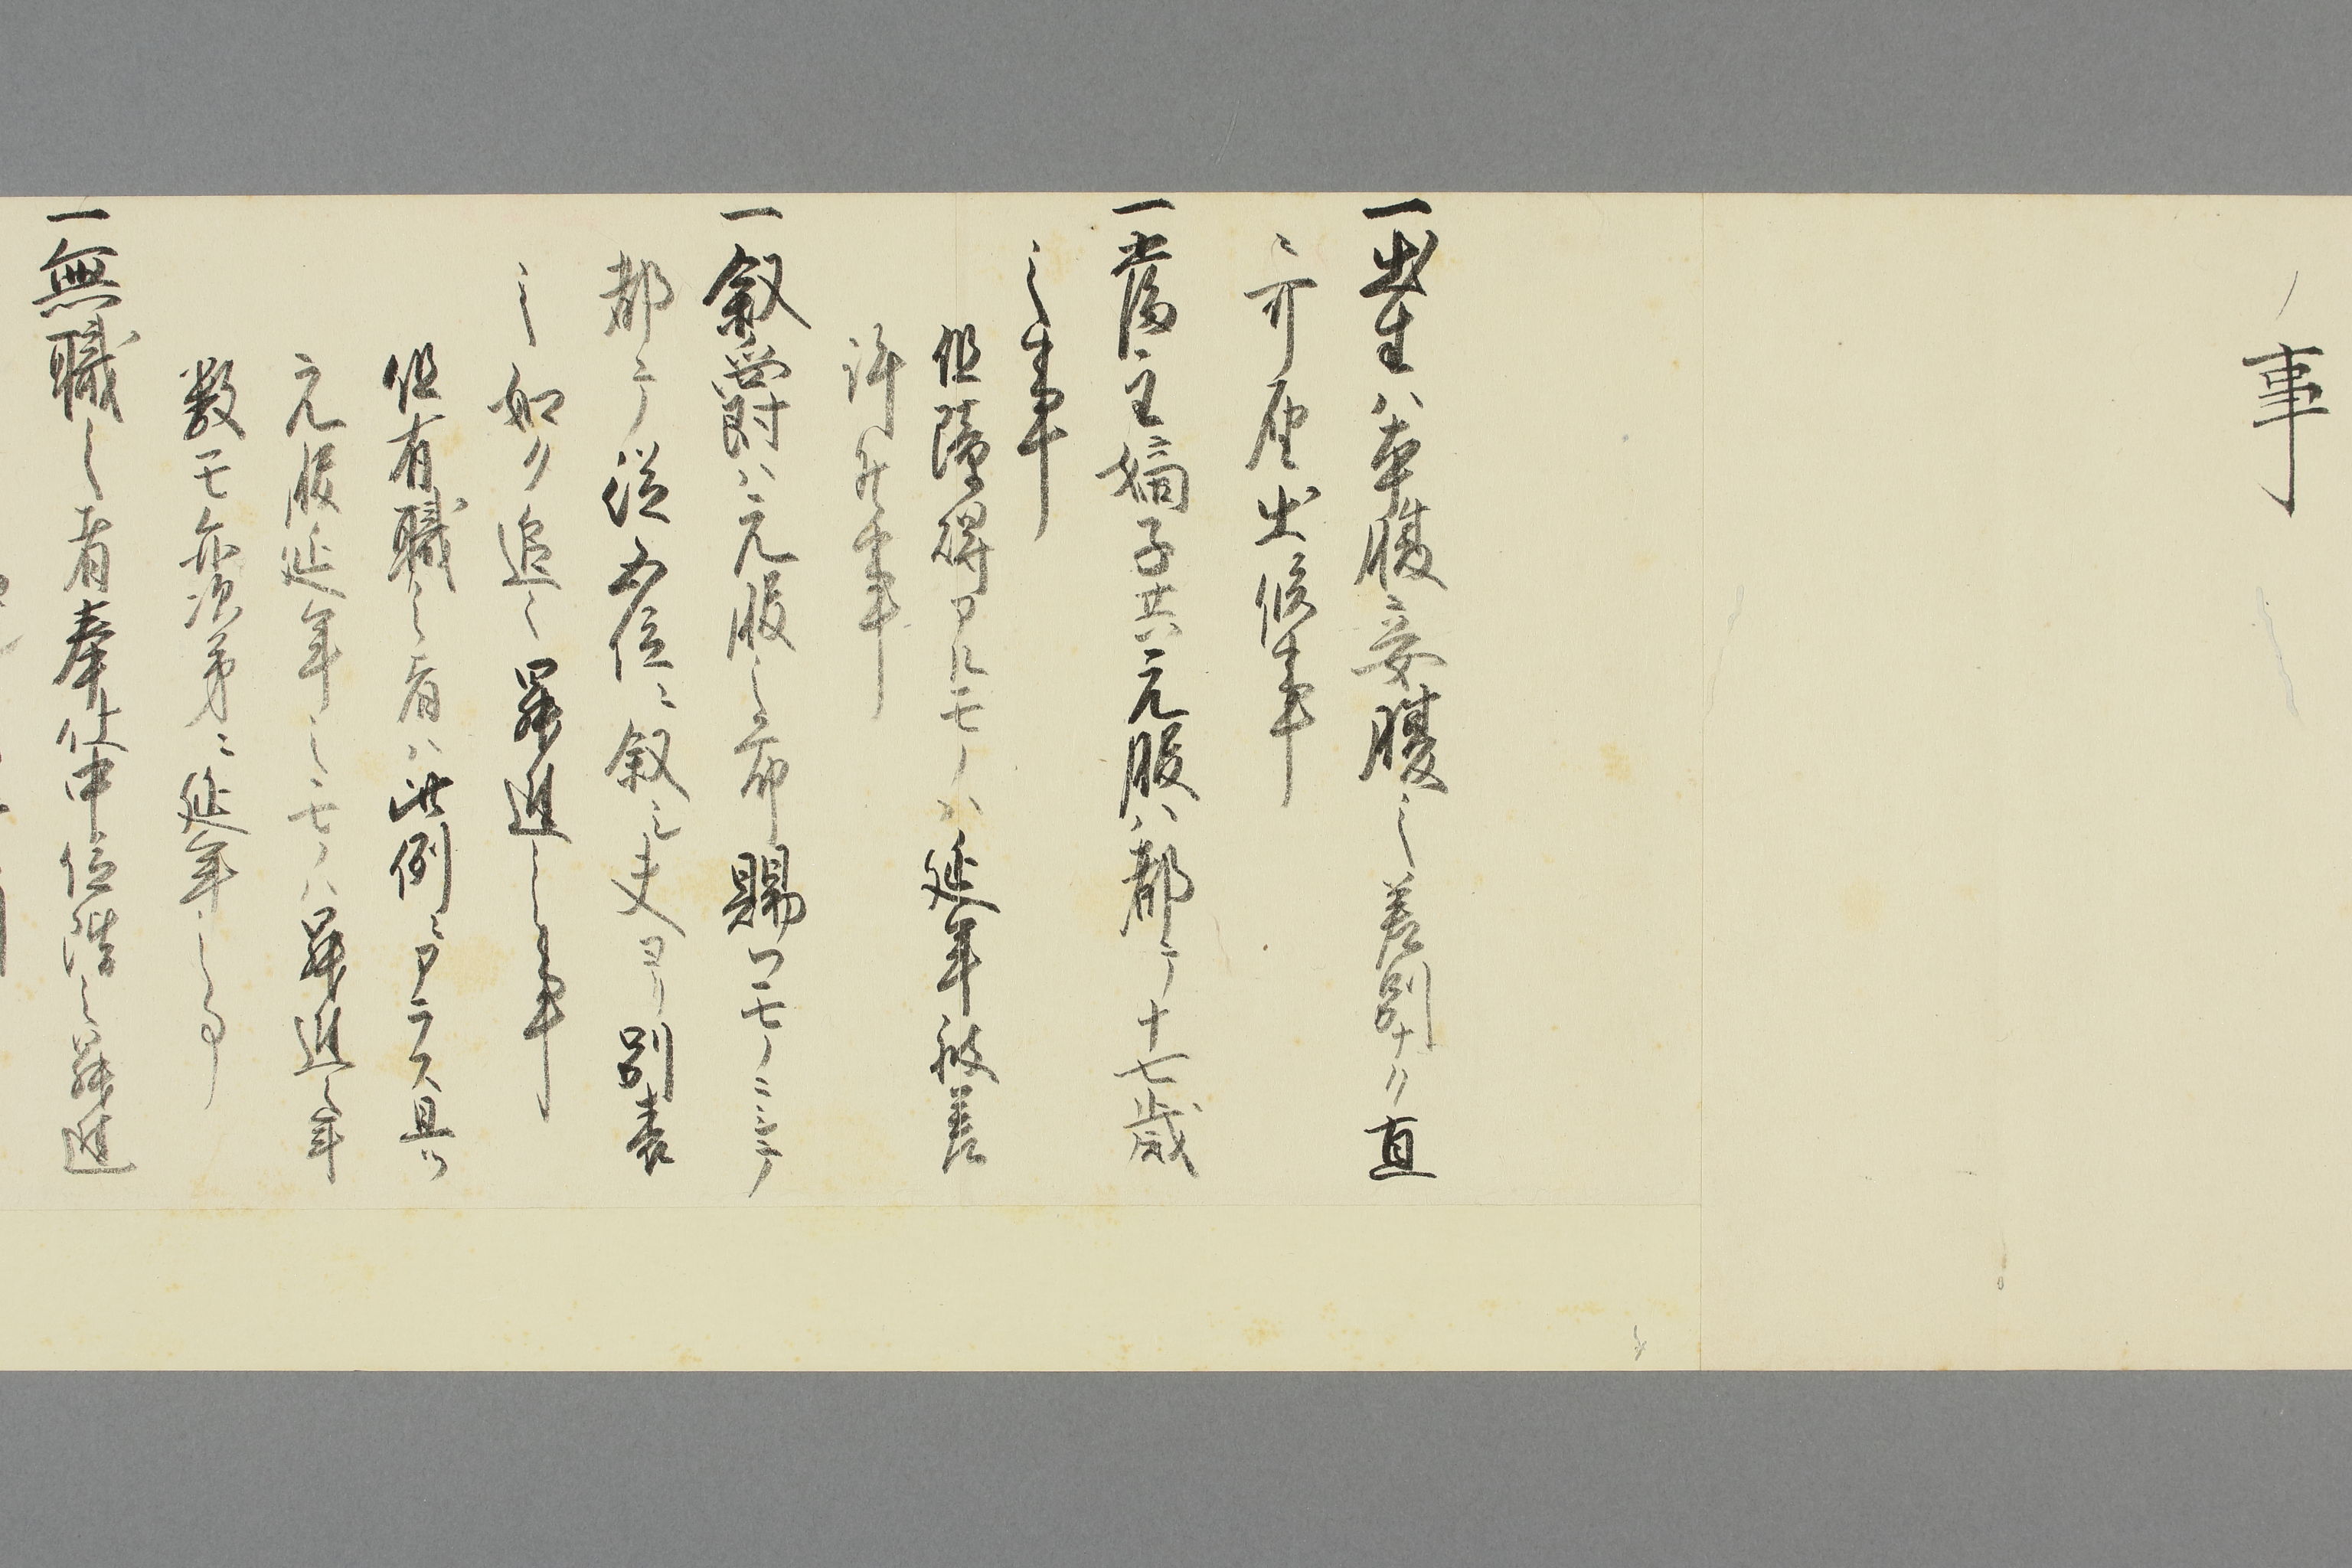 事
一出生ハ本腹妾腹之差別ナク直
ニ可届出候事
一当主嫡子共元服ハ都テ十七歳
之事
但障碍アルモノハ延年被差
許候事
一叙爵ハ元服之節賜フモノニシテ
都テ従五位ニ叙シ夫ヨリ別書
之如ク追々昇進之事
但有職之者ハ此例ニアラス且ツ
元服延年之モノハ昇進之年
数モ亦次第ニ延年之事
一無職之者奉仕中位階之昇進